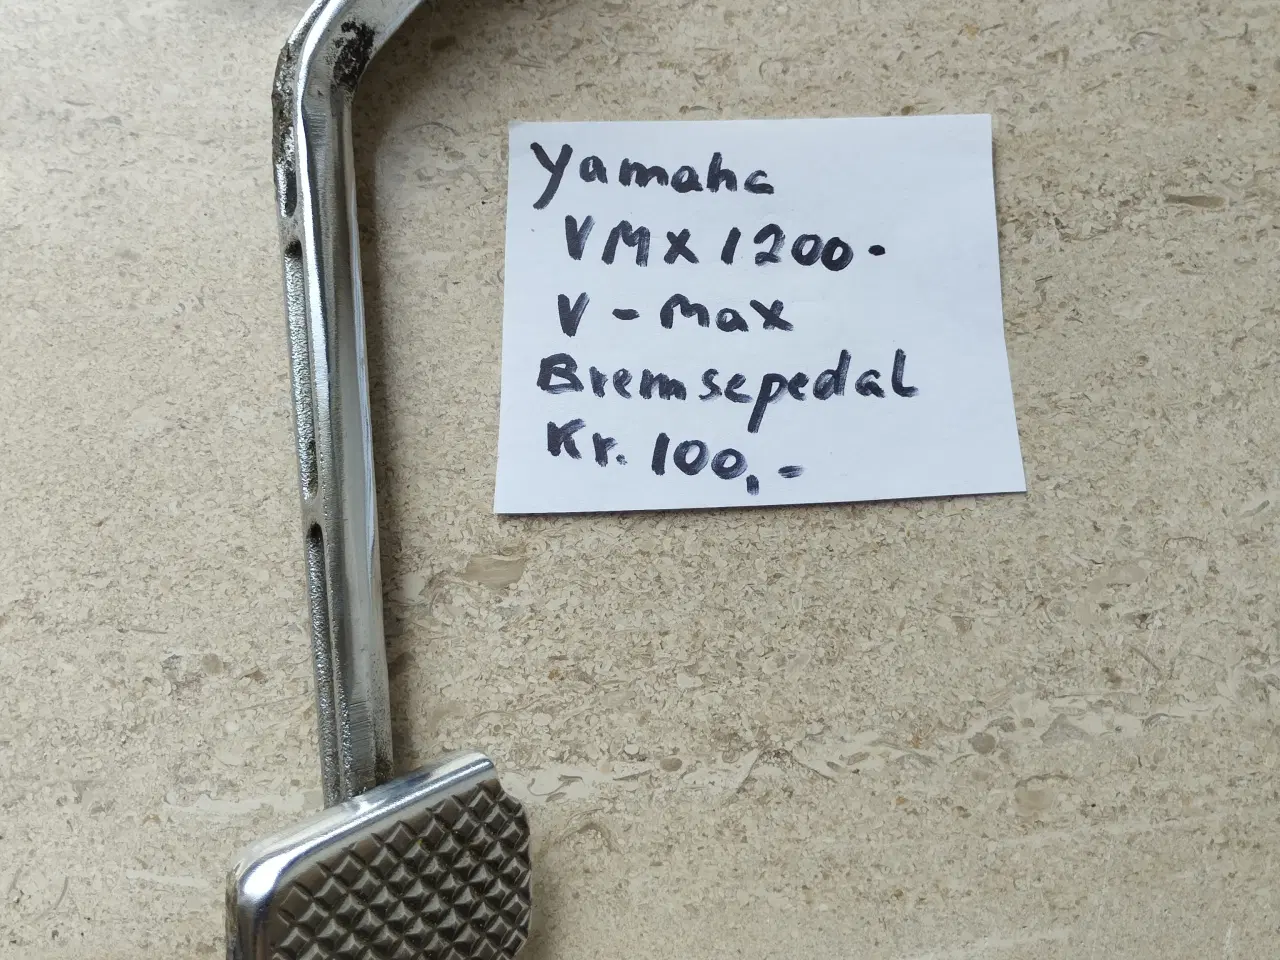 Yamaha
VMX 1200.
V-Max
Bremsepedal
Kr. 100,-